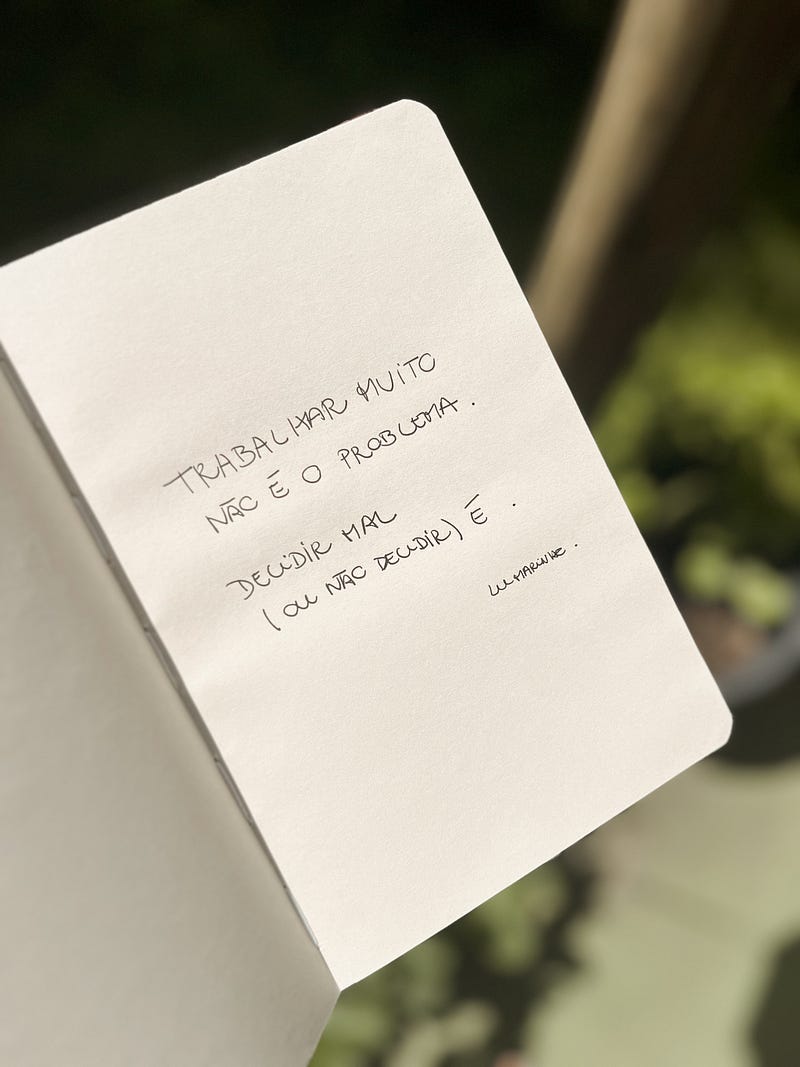 TRABALHAR MUITO
NÃO É O PROBLEMA.
DECIDIR MAL
(OU NÃO DECIDIR) É.
LU MARINHO.